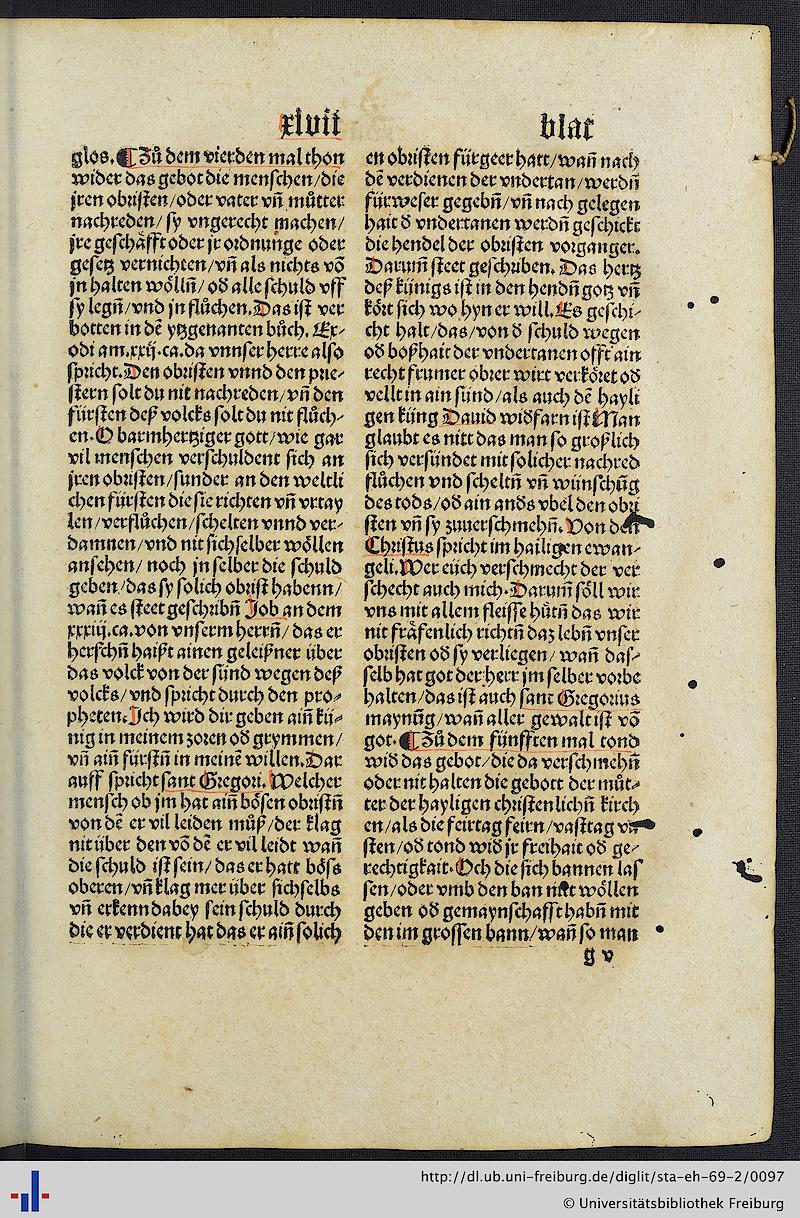 xlvii blat
glos. ¶ Zů dem vierden mal thon
wider das gebot die menschen/die
jren obristen/oder vater vñ můtter
nachreden/ sy vngerecht machen/
jre geschäfft oder jr ordnunge oder
gesetz vernichten/vñ als nichts vō
jn halten wöllñ/ od alle schuld vff
sy legñ/vnd jn flůchen. Das ist ver
botten in dē ytzgenanten bůch. Ex⸗
odi am.xxij.ca.da vnnser herre also
spricht. Den obristen vnnd den prie⸗
stern solt du nit nachreden/vñ den
fürsten deß volcks solt du nit flůch⸗
en. O barmhertziger gott/wie gar
vil menschen verschuldent sich an
jren obristen/sunder an den weltli
chen fürsten die sie richten vñ vrtay
len/verflůchen/schelten vnnd ver⸗
damnen/vnd nit sich selber wöllen
ansehen/ noch jn selber die schuld
geben/das sy solich obrist habenn/
wañ es steet geschribñ Job an dem
xxxiiij.ca.von vnserm herrñ/ das er
herschñ haißt ainen geleißner über
das volck von der sünd wegen deß
volcks/vnd spricht durch den pro⸗
pheten. Ich wird dir geben aiñ kü⸗
nig in meinem zoren od grymmen/
vñ aiñ fürstñ in meinē willen. Dar
auff spricht sant Gregori. Welcher
mensch ob jm hat aiñ bösen obristñ
von dē er vil leiden můß/der klag
nit über den vō dē er vil leidt wañ
die schuld ist sein/das er hatt böss
oberen/vñ klag mer über sich selbs
vñ erkenn dabey sein schuld durch
die er verdient hat das er aiñ solich
en obristen fürgeer hatt/wañ nach
dē verdienen der vndertan/werdñ
fürweser gegebñ/vñ nach gelegen
hait d vndertanen werdñ geschickt
die hendel der obristen vorganger.
Darum̃ steet geschriben. Das hertz
deß künigs ist in den hendñ gotz vñ
kört sich wo hyn er will. Es geschi⸗
cht halt/das/von d schuld wegen
od boßhait der vndertanen offt ain
recht frumer obrer wirt verköret od
vellt in ain sünd/als auch dē hayli
gen küng Dauid widfarn ist Man
glaubt es nitt das man so größlich
sich versündet mit solicher nachred
flůchen vnd scheltñ vñ wünschūg
des tods/od ain ands vbel den obri
sten vñ sy zuuerschmehñ. Von den
Christus spricht im hailigen ewan⸗
geli. Wer euch verschmecht der ver
schecht auch mich. Darum̃ söll wir
vns mit allem fleisse hůtñ das wir
nit fräfenlich richtñ daz lebñ vnser
obristen od sy verliegen/ wañ das⸗
selb hat got der herr jm selber vorbe
halten/das ist auch sant Gregorius
maynūg/wañ aller gewalt ist vō
got. ¶ Zů dem fünfften mal tond
wid das gebot/die da verschmehñ
oder nit halten die gebott der můt⸗
ter der hayligen christenlichñ kirch
en/als die feirtag feirn/vasttag va⸗
sten/od tond wid jr freihait od ge⸗
rechtigkait. Och die sich bannen las
sen/oder vmb den ban nitt wöllen
geben od gemaynschafft habñ mit
den im grossen bann/wañ so man
g v
http://dl.ub.uni-freiburg.de/diglit/sta-eh-69-2/0097
© Universitätsbibliothek Freiburg